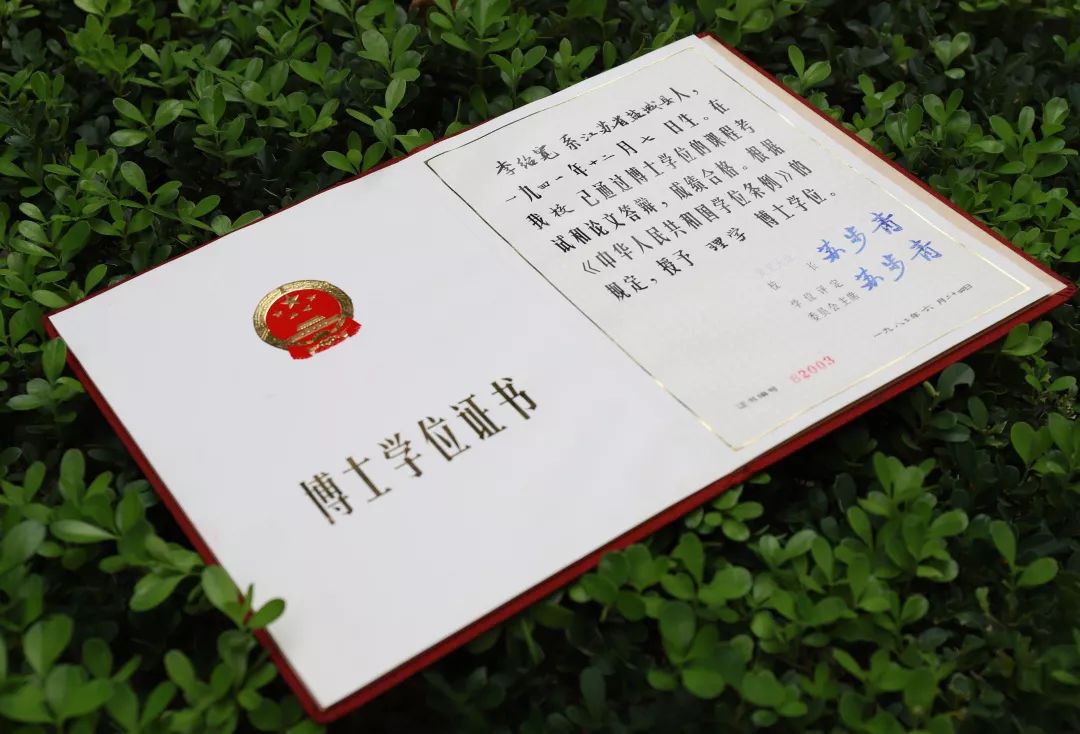 博士学位证书
李绍宽 系江苏省盐城县人，
一九四一年十二月七日生。在
我校已通过博士学位的课程考
试和论文答辩，成绩合格。根据
《中华人民共和国学位条例》的
规定，授予 理学 博士学位。
校 长 苏步青
学位评定
委员会主席 苏步青
一九八三年六月二十四日
证书编号 82003